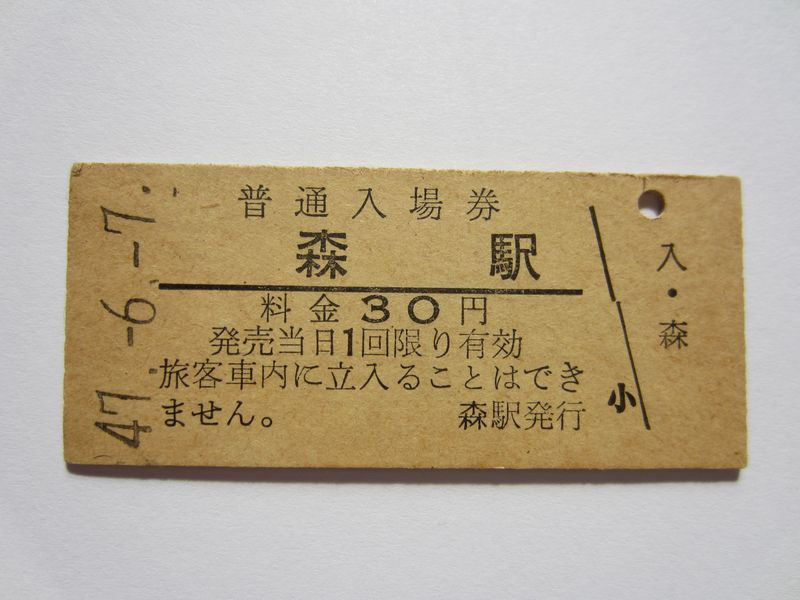 普通入場券
森 駅
料金30円
発売当日1回限り有効
旅客車内に立入ることはでき
ません。 森駅発行
小
入・森
47.-6.-7.